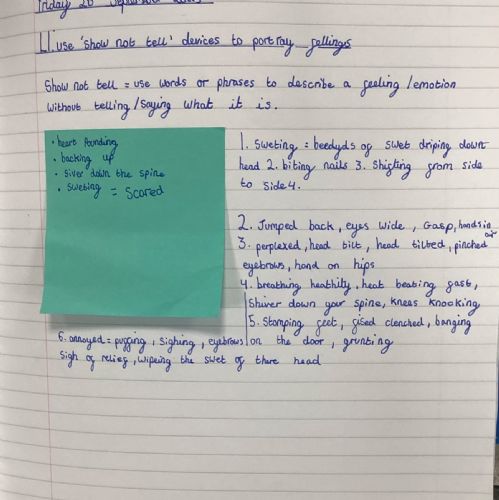 Friday 20
LI: use 'show not tell' devices to portray fellings
Show not tell = use words or phrases to describe a feeling/emotion
without telling/saying what it is.
• heart Pounding
• backing up
• siver down the spine
• sweting = scared
1. sweting = beedyds of swet driping down
head 2. biting nails 3. Shifting from side
to side 4.
2. Jumped back, eyes wide, Gasp, hands in air
3. perplexed, head tilt, head tilted, pinched
eyebrows, hand on hips
4. breathing heathily, heat beating fast,
shiver down your spine, kneas knocking
5. Stomping feet, fised clenched, banging
on the door, grunting
6. annoyed = puffing, sighing, eyebrows
sigh of relief, wipeing the swet of there head